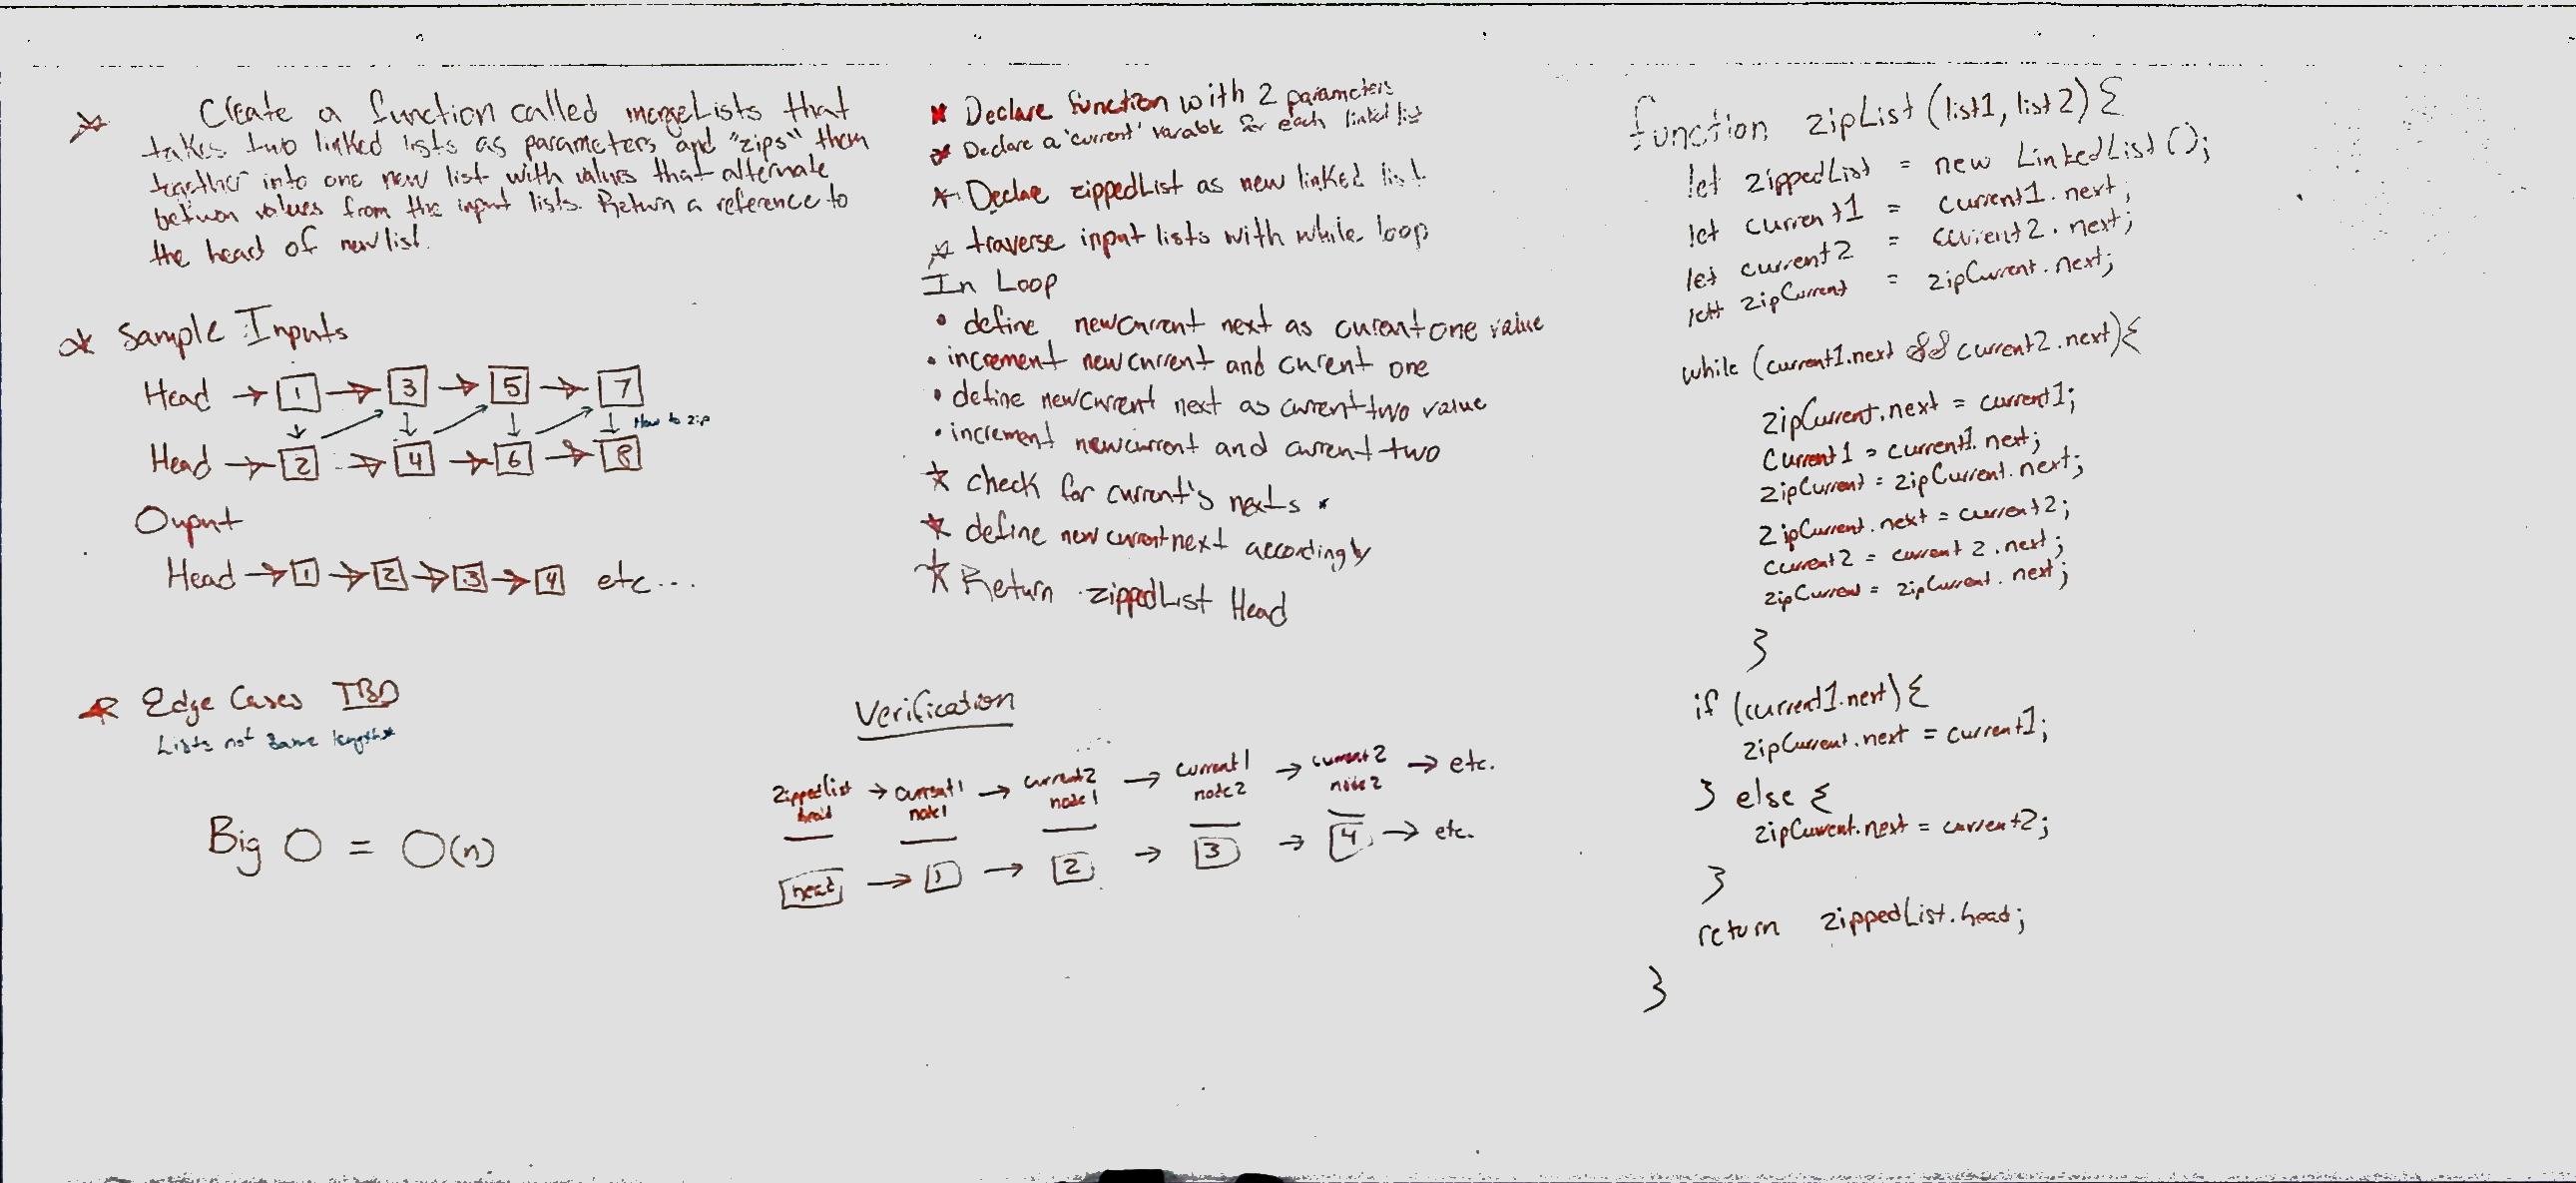 Create a function called mergeLists that
takes two linked lists as parameters and "zips" them
together into one new list with values that alternate
between values from the input lists. Return a reference to
the head of new list.
Sample Inputs
Head → 1 → 3 → 5 → 7
How to zip
Head → 2 → 4 → 6 → 8
Ouput
Head → 1 → 2 → 3 → 4 etc...
Edge Cases TBD
Lists not same lengths*
Big O = O(n)
Declare function with 2 parameters
Declare a 'current' varable for each linked list
Declae zippedList as new linked list
traverse input lists with while loop
In Loop
• define newcurrent next as curent one value
• increment newcurrent and curent one
• define newcurrent next as current two value
• increment newcurrent and current two
check for current's nexts *
define new current next accordingly
Return zippedList Head
Verification
zippedlist head → current1 node1 → current2 node1 → current1 node2 → current2 node2 → etc.
head → 1 → 2 → 3 → 4 → etc.
function zipList (list1, list2) {
let zippedList = new LinkedList ();
let current1 = current1.next;
let current2 = current2.next;
let zipCurrent = zipCurrent.next;
while (current1.next && current2.next){
zipCurrent.next = current1;
Current1 = current1.next;
zipCurrent = zipCurrent.next;
zipCurrent.next = current2;
current2 = current2.next;
zipCurren = zipCurrent.next;
}
if (current1.next) {
zipCurrent.next = current1;
} else {
zipCurrent.next = current2;
}
return zippedList.head;
}